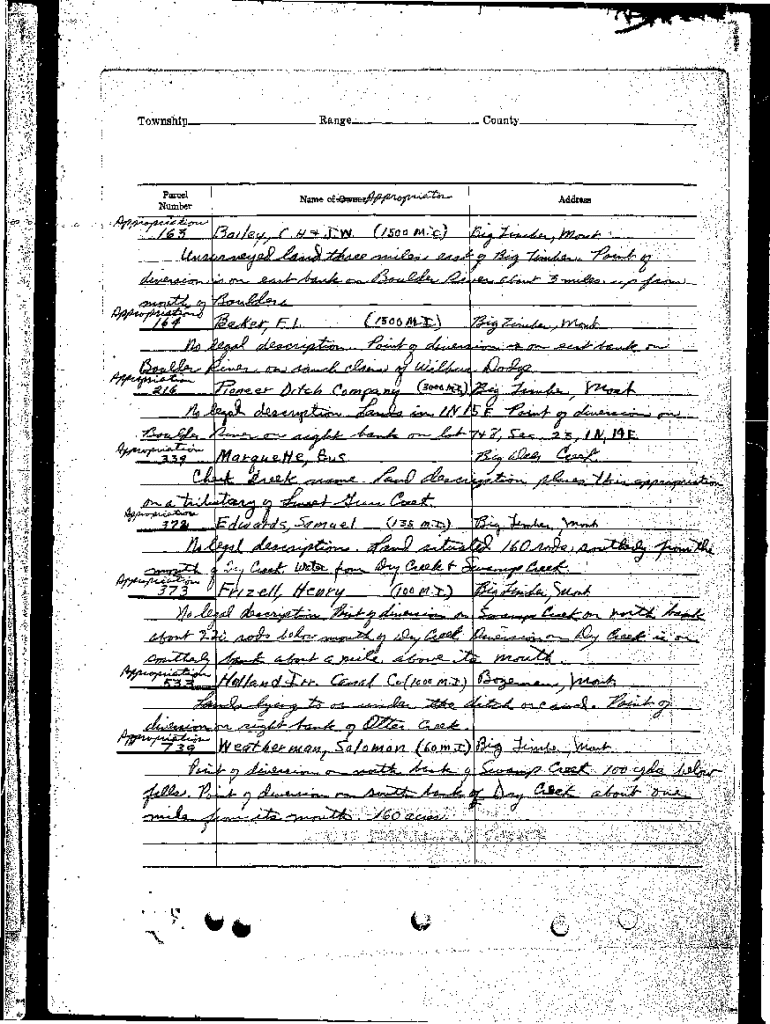 Township Range County
Parcel Number Name of Owner Appropriator Address
Appropriation
163 Bailey, C.H. & J.W. (1500 M.I.) Big Timber, Mont.
Unsurveyed land three miles east of Big Timber. Point of
diversion is on east bank on Boulder River about 3 miles up from
mouth of Boulder
Appropriation
164 Baker, F.L. (1500 M.I.) Big Timber, Mont
No legal description. Point of diversion is on east bank on
Boulder River, on ranch claim of Wilbur Dodge
Appropriation
216 Pioneer Ditch Company (3000 M.I.) Big Timber, Mont
No legal description Lands in 1N 15E Point of diversion on
Boulder River on right bank on lot 7 & 8, Sec. 23, 1N, 14E
Appropriation
339 Marquette, Gus Big Creek
Check Creek name. Land description places this appropriation
on a tributary of Sweet Grass
Appropriation
372 Edwards, Samuel (135 M.I.) Big Timber, Mont
No legal descriptions. Land situated 160 rods, southerly from the
mouth of Dry Creek. Water from Dry Creek & Swamp Creek
Appropriation
373 Frizell, Henry (100 M.I.) Big Timber, Mont
No legal description Point of diversion on Swamp Creek on north bank
about rods below mouth of Dry Creek. Diversion on Dry Creek is on
southerly bank about a mile above its mouth.
Appropriation
533 Holland Irr. Canal Co (1000 M.I.) Bozeman, Mont
Lands lying to or under the ditch or canal. Point of
diversion on right bank of Otter Creek.
Appropriation
739 Weatherman, Solomon (60 M.I.) Big Timber, Mont
Point of diversion on north bank of Swamp Creek 100 yds below
falls. Point of diversion on south bank of Dry Creek about one
mile from its mouth. 160 acres